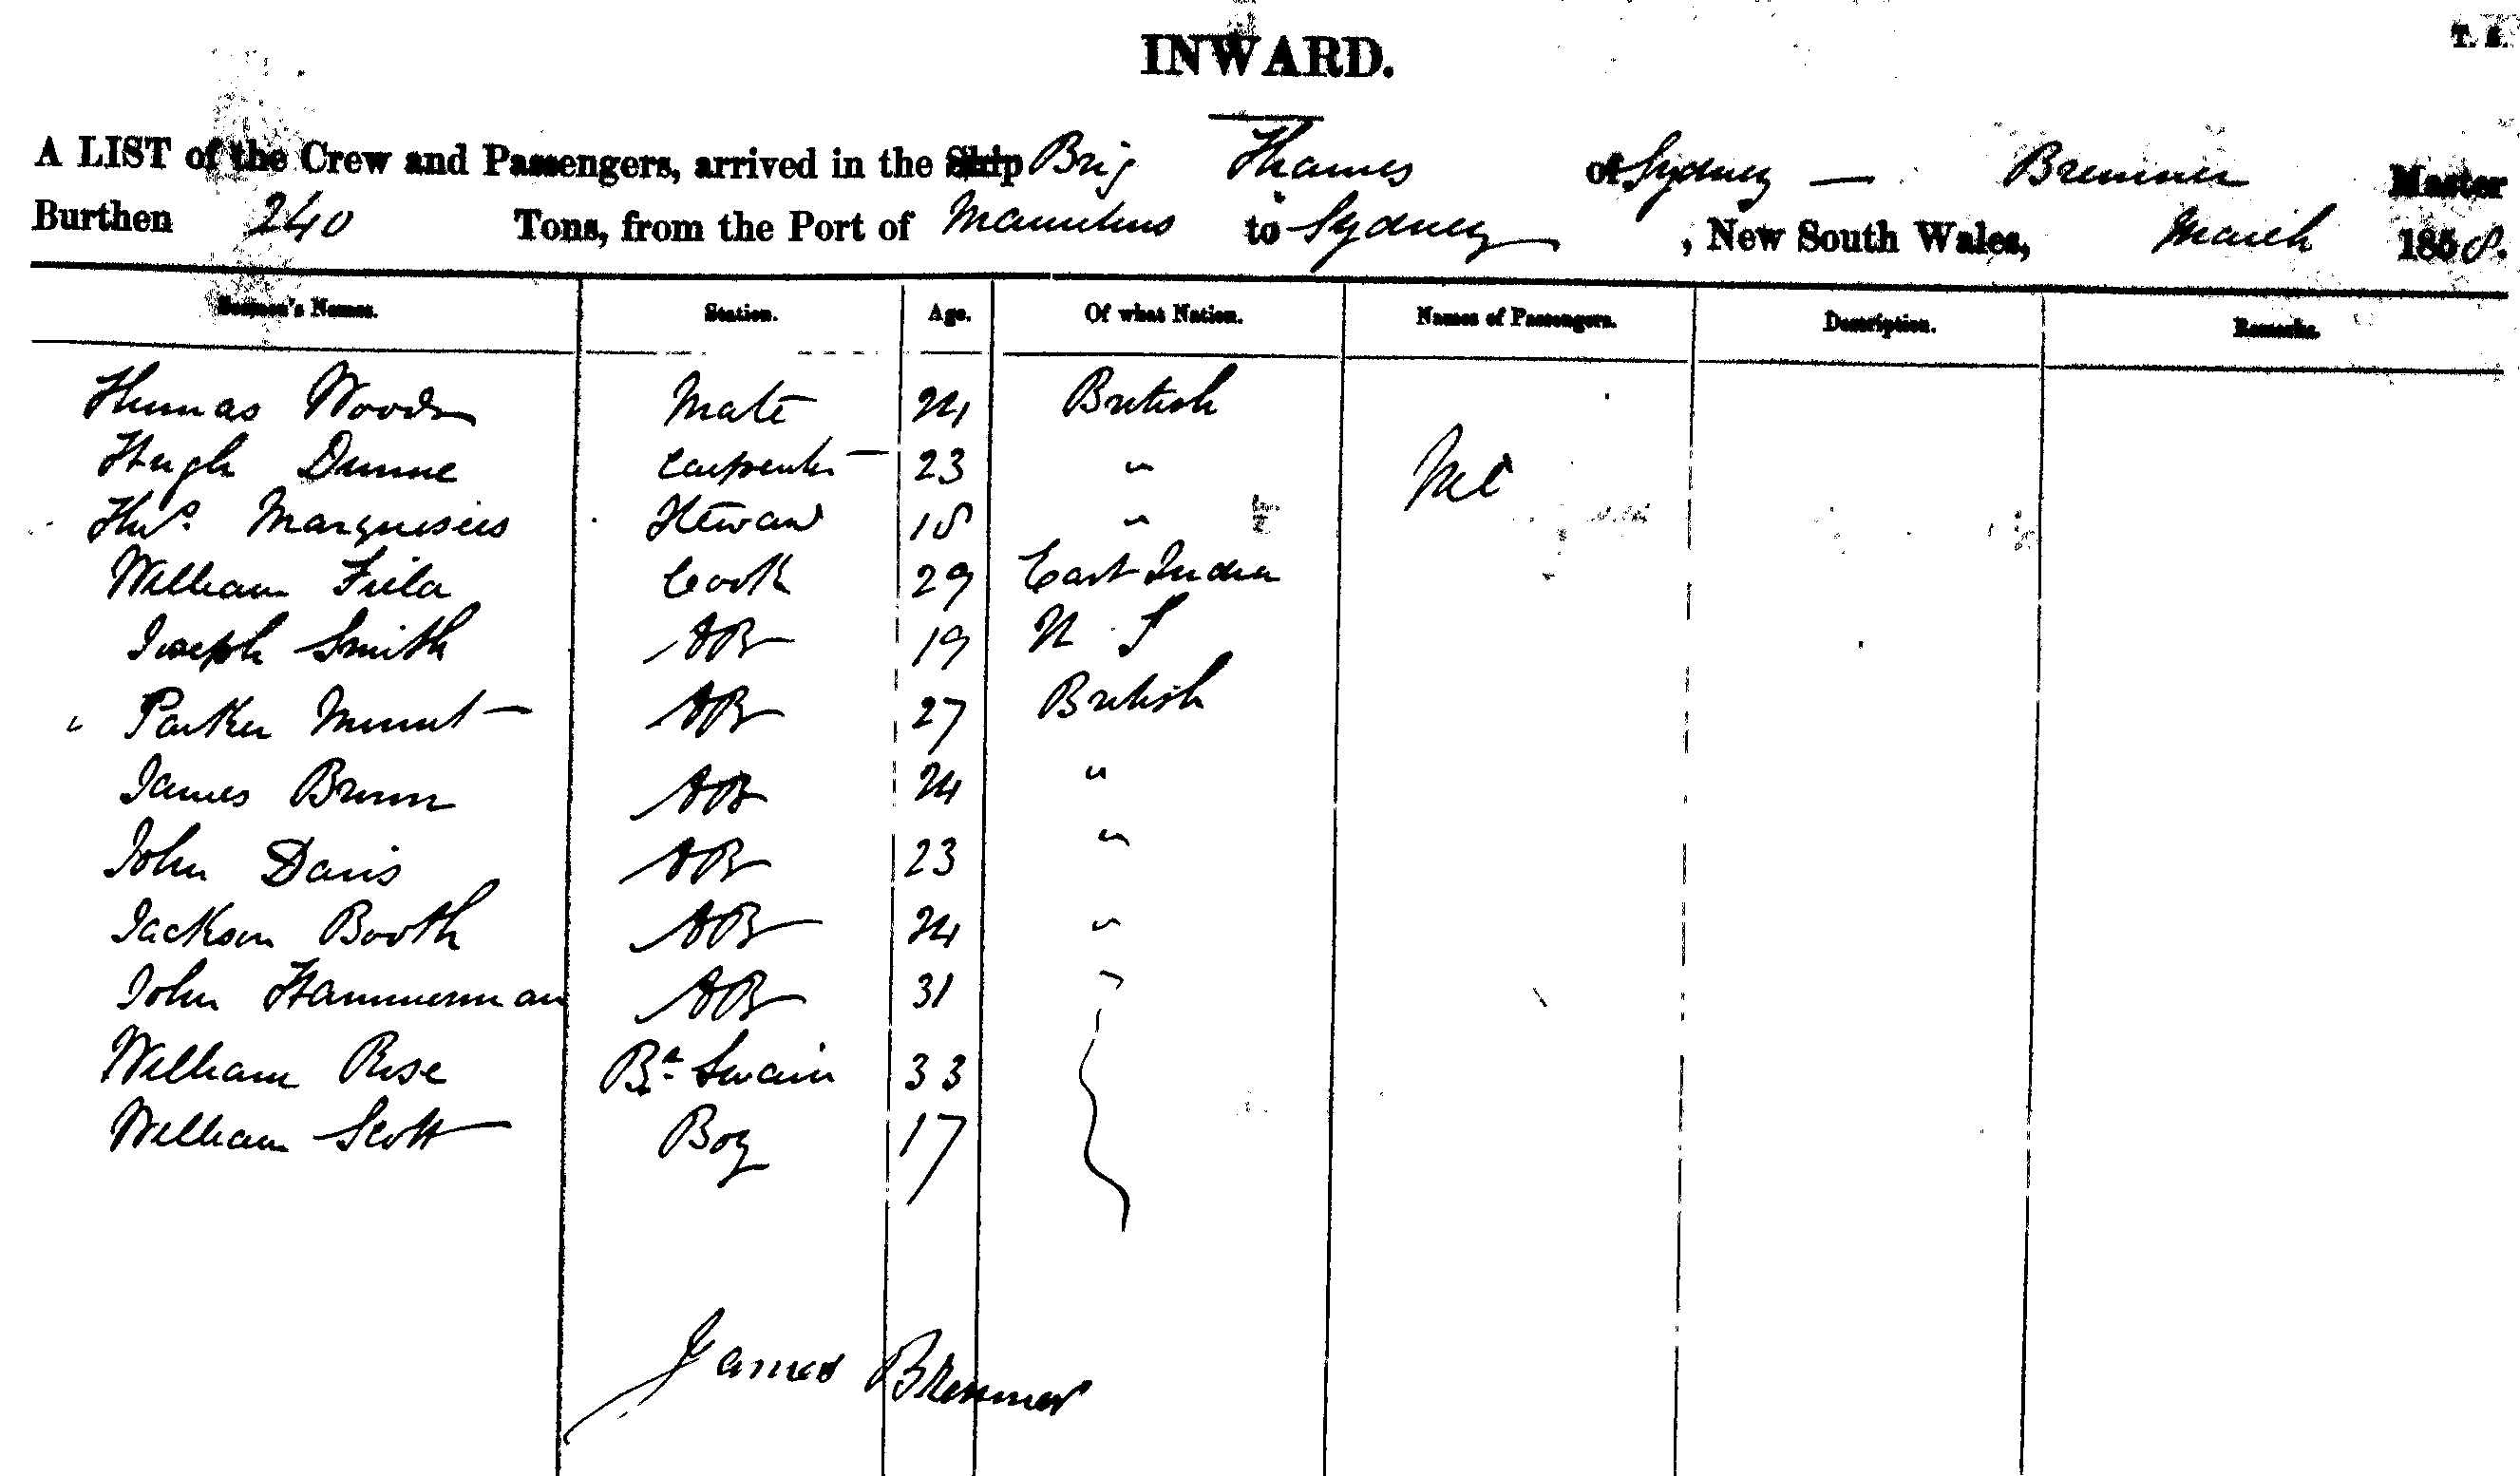 INWARD.
T. S.
A LIST of the Crew and Passengers, arrived in the Ship Brig Thames of Sydney — Bremner Master
Burthen 240 Tons, from the Port of Mauritius to Sydney, New South Wales, March 1858.
Seamen's Names. Station. Age. Of what Nation. Names of Passengers. Description. Remarks.
Thomas Woods Mate 24 British
Hugh Dunne Carpenter — 23 "
Thos. 18 "
William Cook 29 East India
Joseph Smith AB 19
Parker AB 27 British
James Brown AB 24 "
John Davis AB 23 "
Jackson Booth AB 24 "
John Hammerman AB 31 "
William Rose Bn. Swain 33
William Scott Boy 17
James Bremner